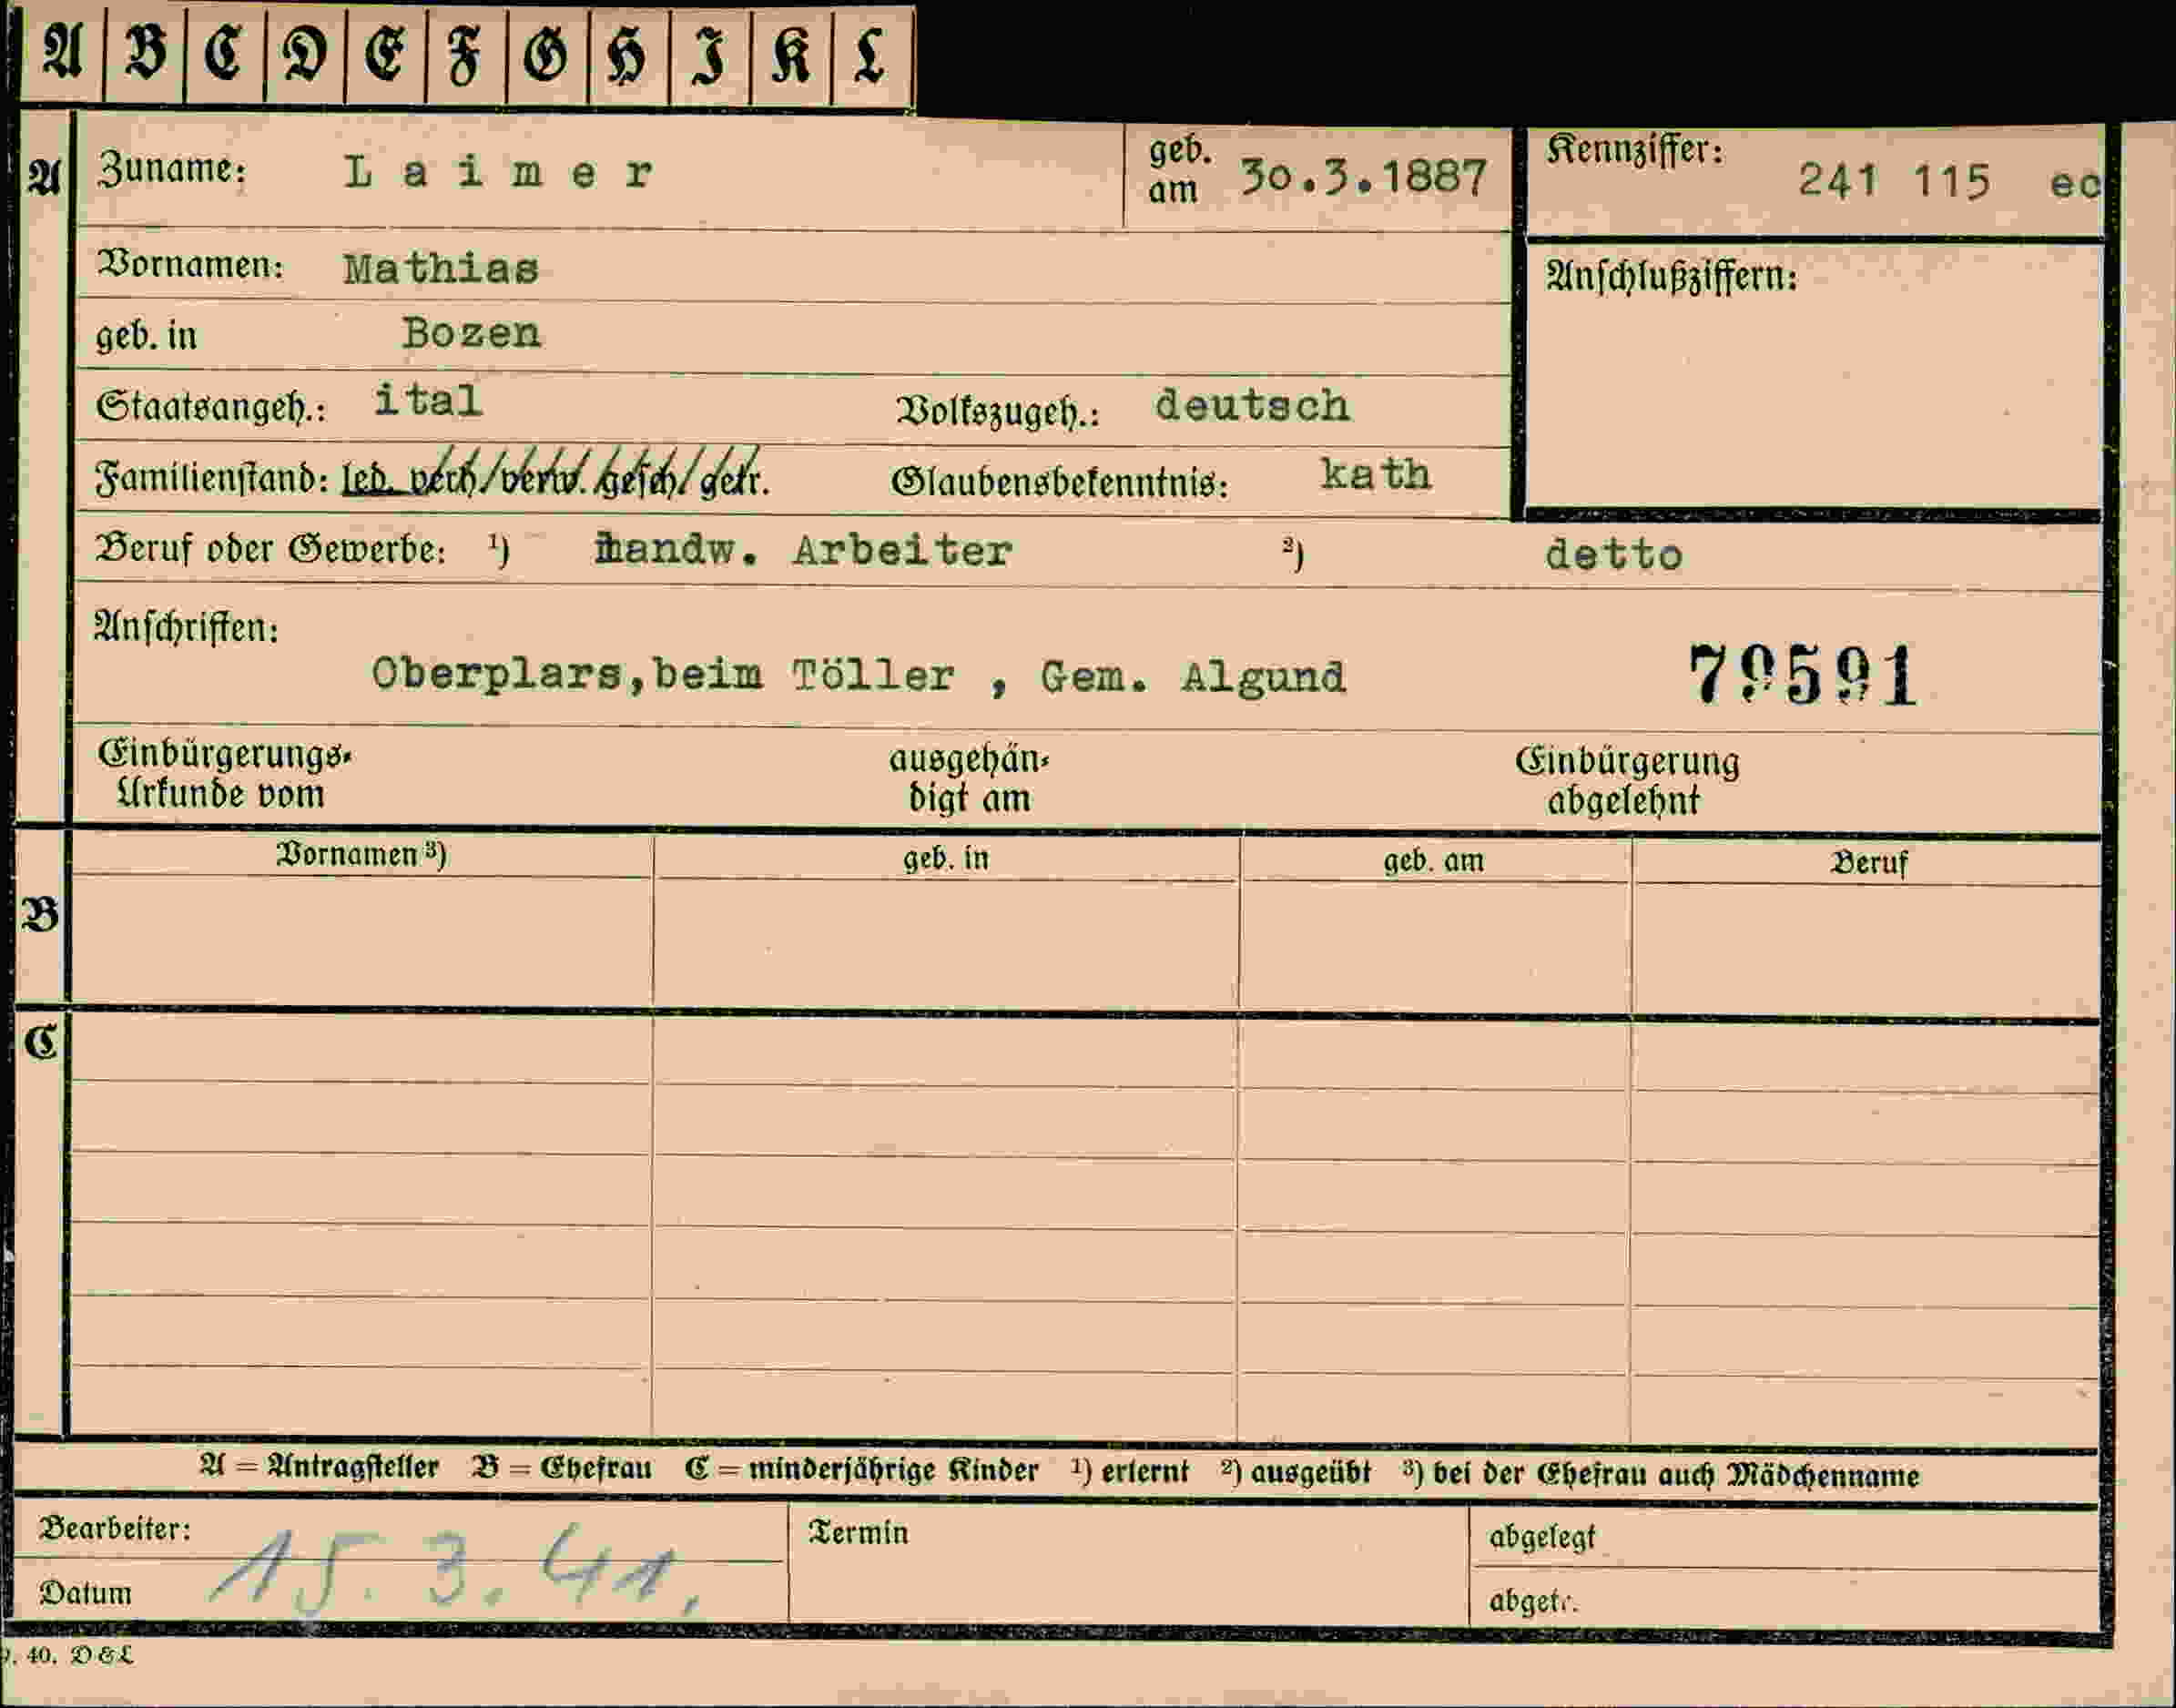 A B C D E F G H I K L
A Zuname: Laimer geb. am 30.3.1887 Kennziffer: 241 115 ec
Vornamen: Mathias Anschlußziffern:
geb. in Bozen
Staatsangeh.: ital Volkszugeh.: deutsch
Familienstand: led. verh/verw. gesch/getr. Glaubensbekenntnis: kath
Beruf oder Gewerbe: ¹) handw. Arbeiter ²) detto
Anschriften:
Oberplars,beim Töller , Gem. Algund 79591
Einbürgerungs- ausgehän- Einbürgerung
Urkunde vom digt am abgelehnt
Vornamen ³) geb. in geb. am Beruf
B
C
A = Antragsteller B = Ehefrau C = minderjährige Kinder ¹) erlernt ²) ausgeübt ³) bei der Ehefrau auch Mädchenname
Bearbeiter: Termin abgelegt
Datum 15. 3. 41. abgetr.
40. D & L